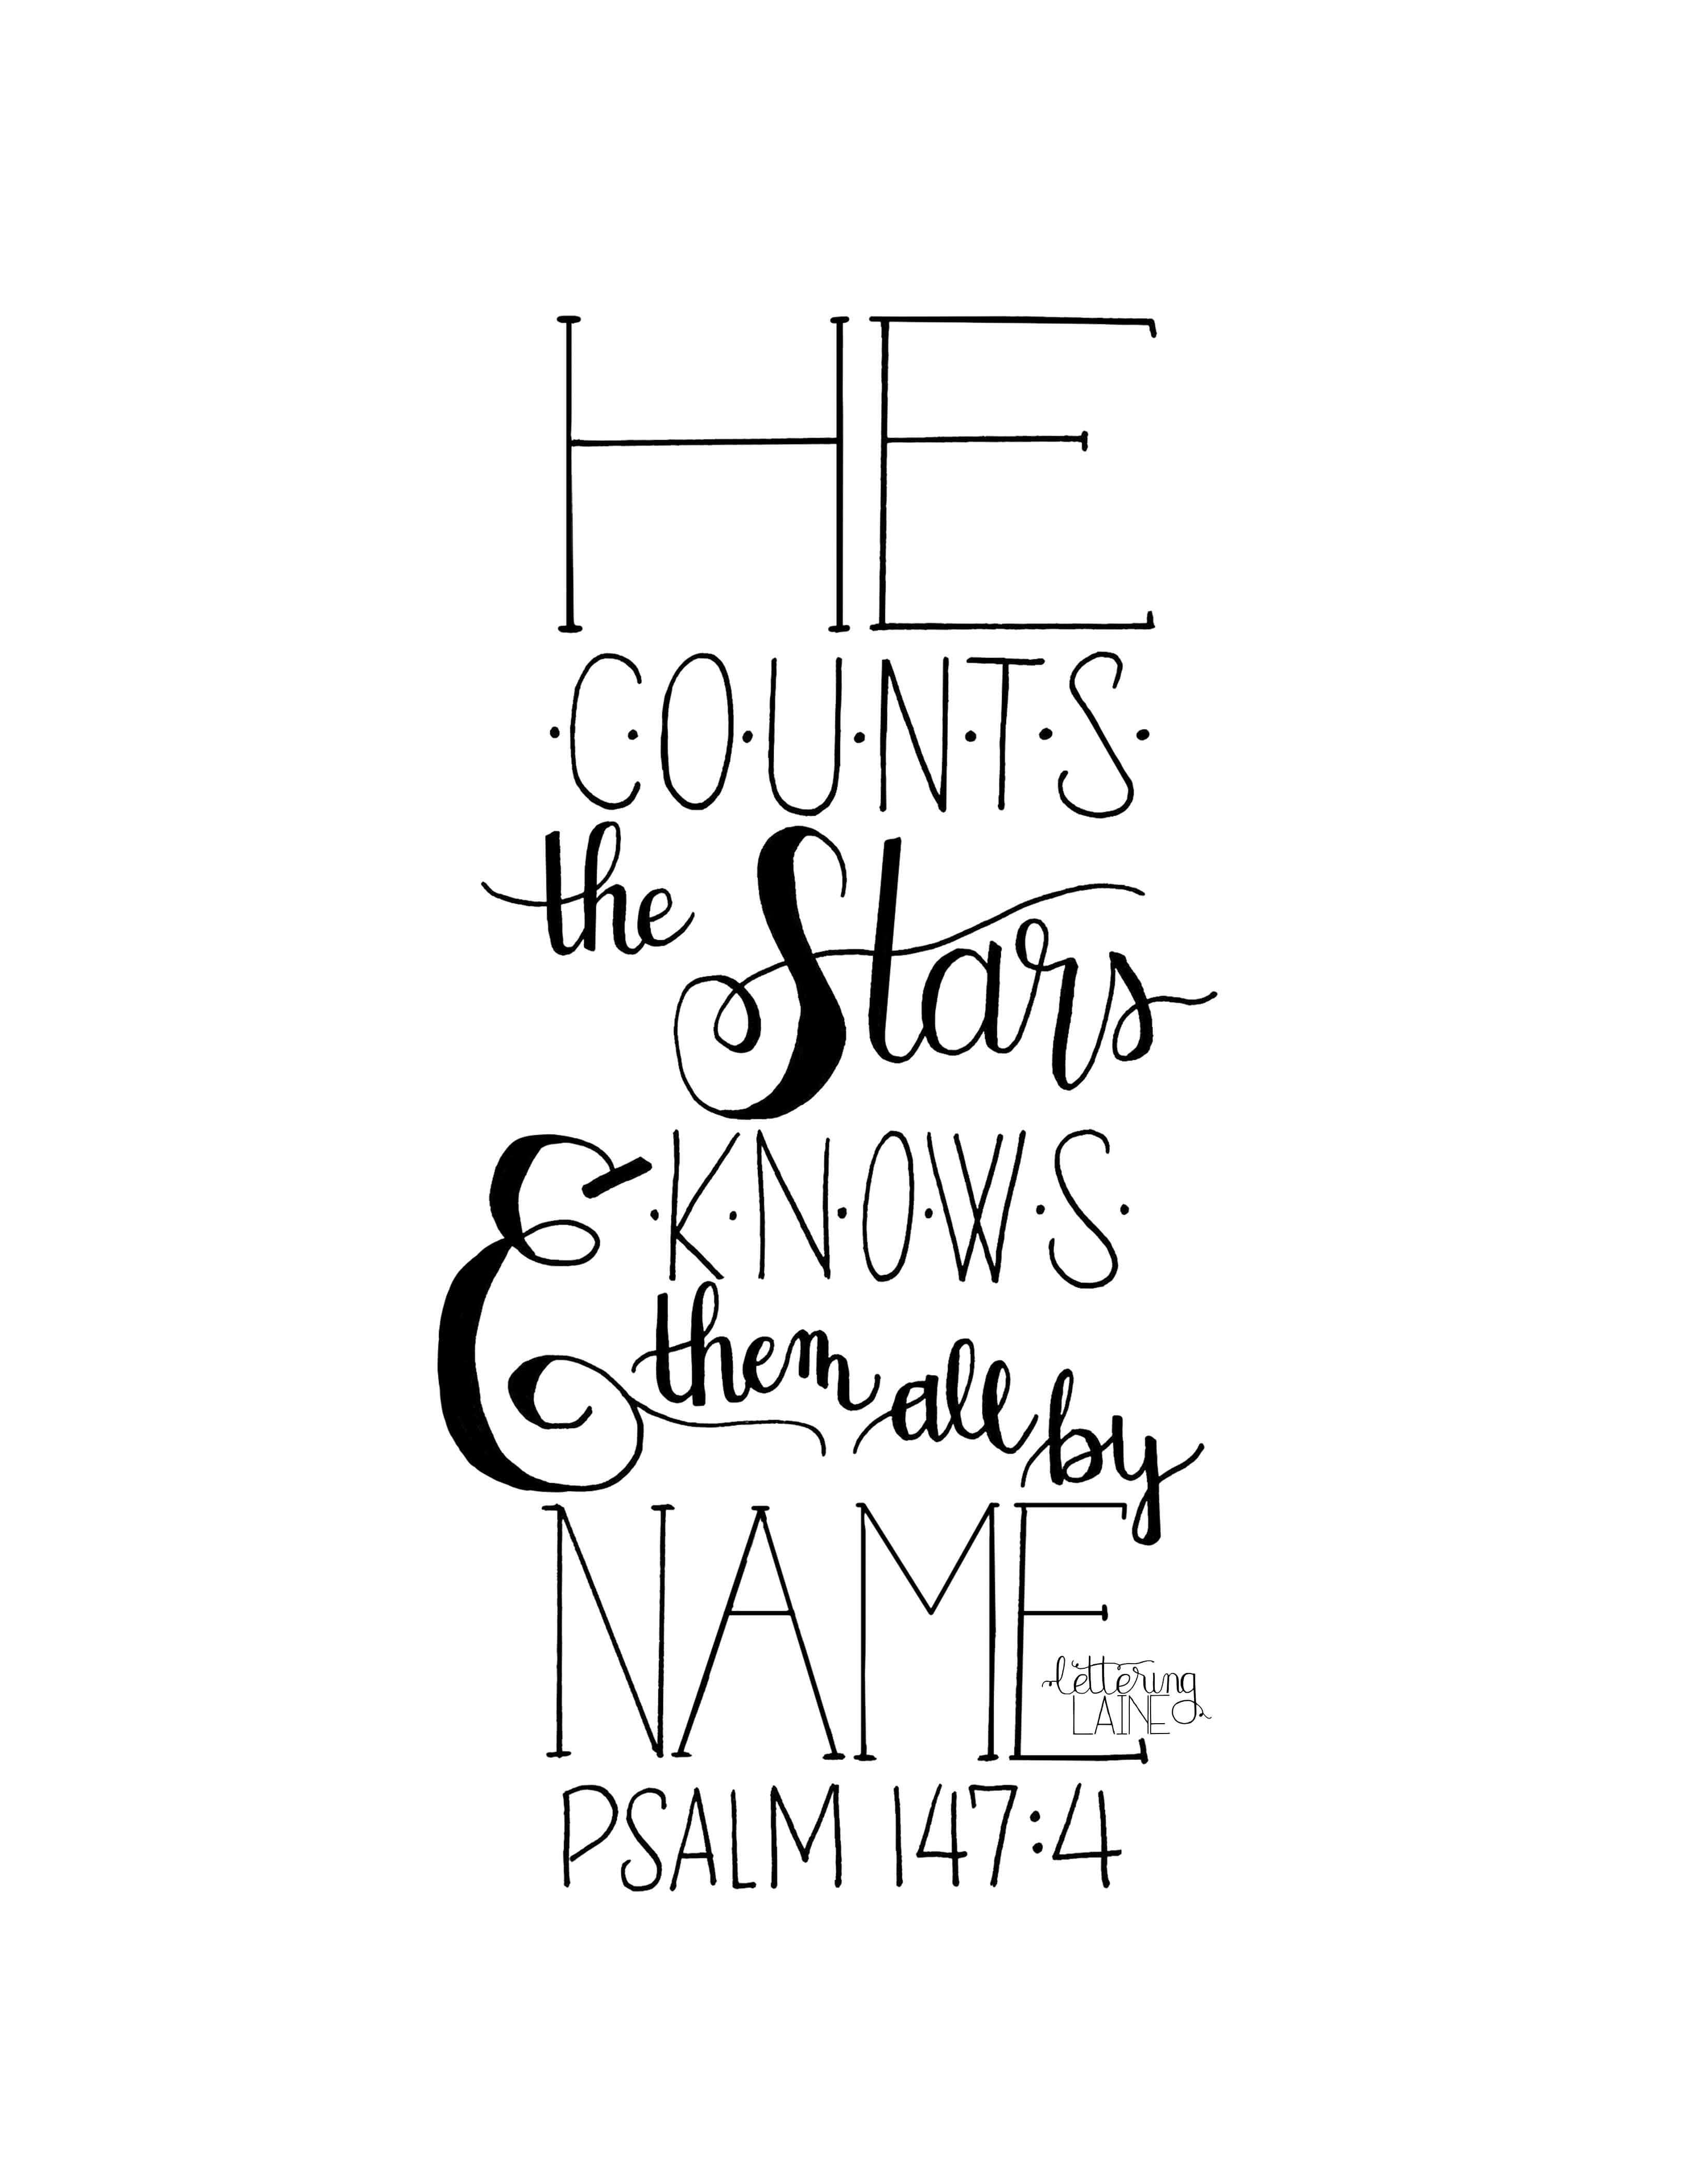 HE
·C·O·U·N·T·S·
the Stars
& ·K·N·O·W·S·
them all by
NAME
lettering
LAINE
PSALM 147:4